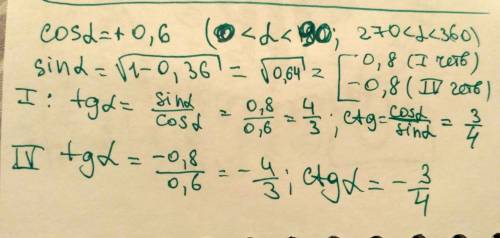 cosα=+0,6 (0<α<90; 270<α<360)
sinα=√1-0,36 = √0,64 = [0,8 (I четв) -0,8 (IV четв)
I: tgα = sinα/cosα = 0,8/0,6 = 4/3; ctg=cosα/sinα = 3/4
IV tgα = -0,8/0,6 = -4/3; ctgα = -3/4